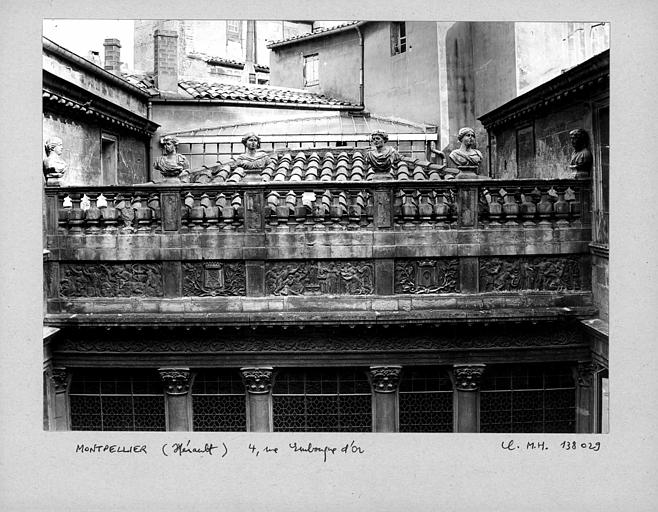 MONTPELLIER (Hérault) 4, rue Embouque d'Or M.H. 138029